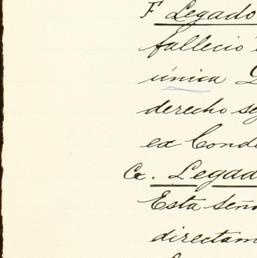 F Legado
falleció
única
derecho se
ex Cond
Cc. Legad
Esta seño
directam